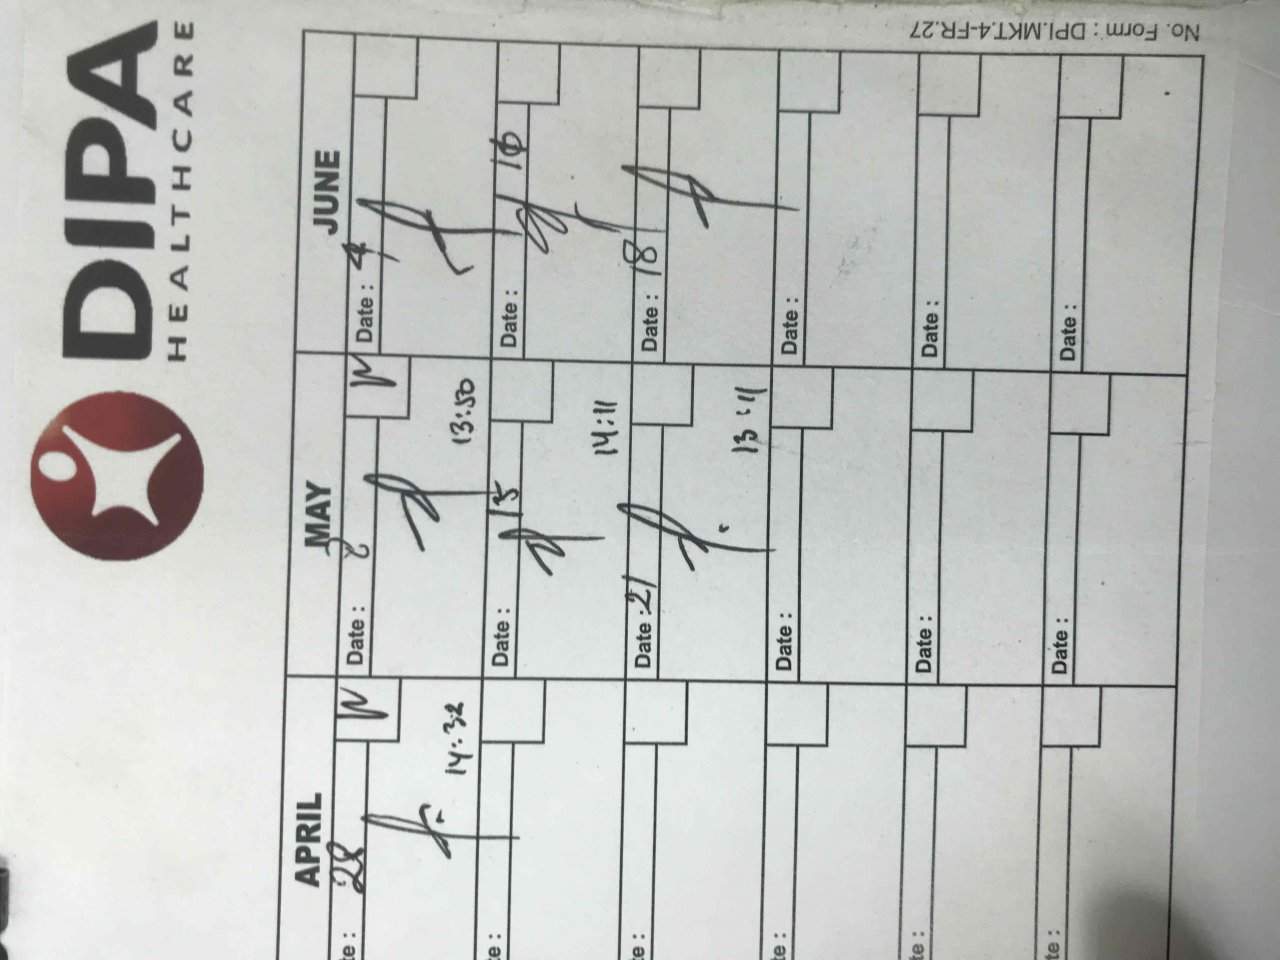 DIPA
HEALTHCARE
APRIL MAY JUNE
te : 28
14:32
Date : 2
13:50
Date : 4
te :
Date : 15
14:11
Date : 10
te :
Date : 21
13:11
Date : 18
te : Date : Date :
te : Date : Date :
te : Date : Date :
No. Form : DPI.MKT.4-FR.27